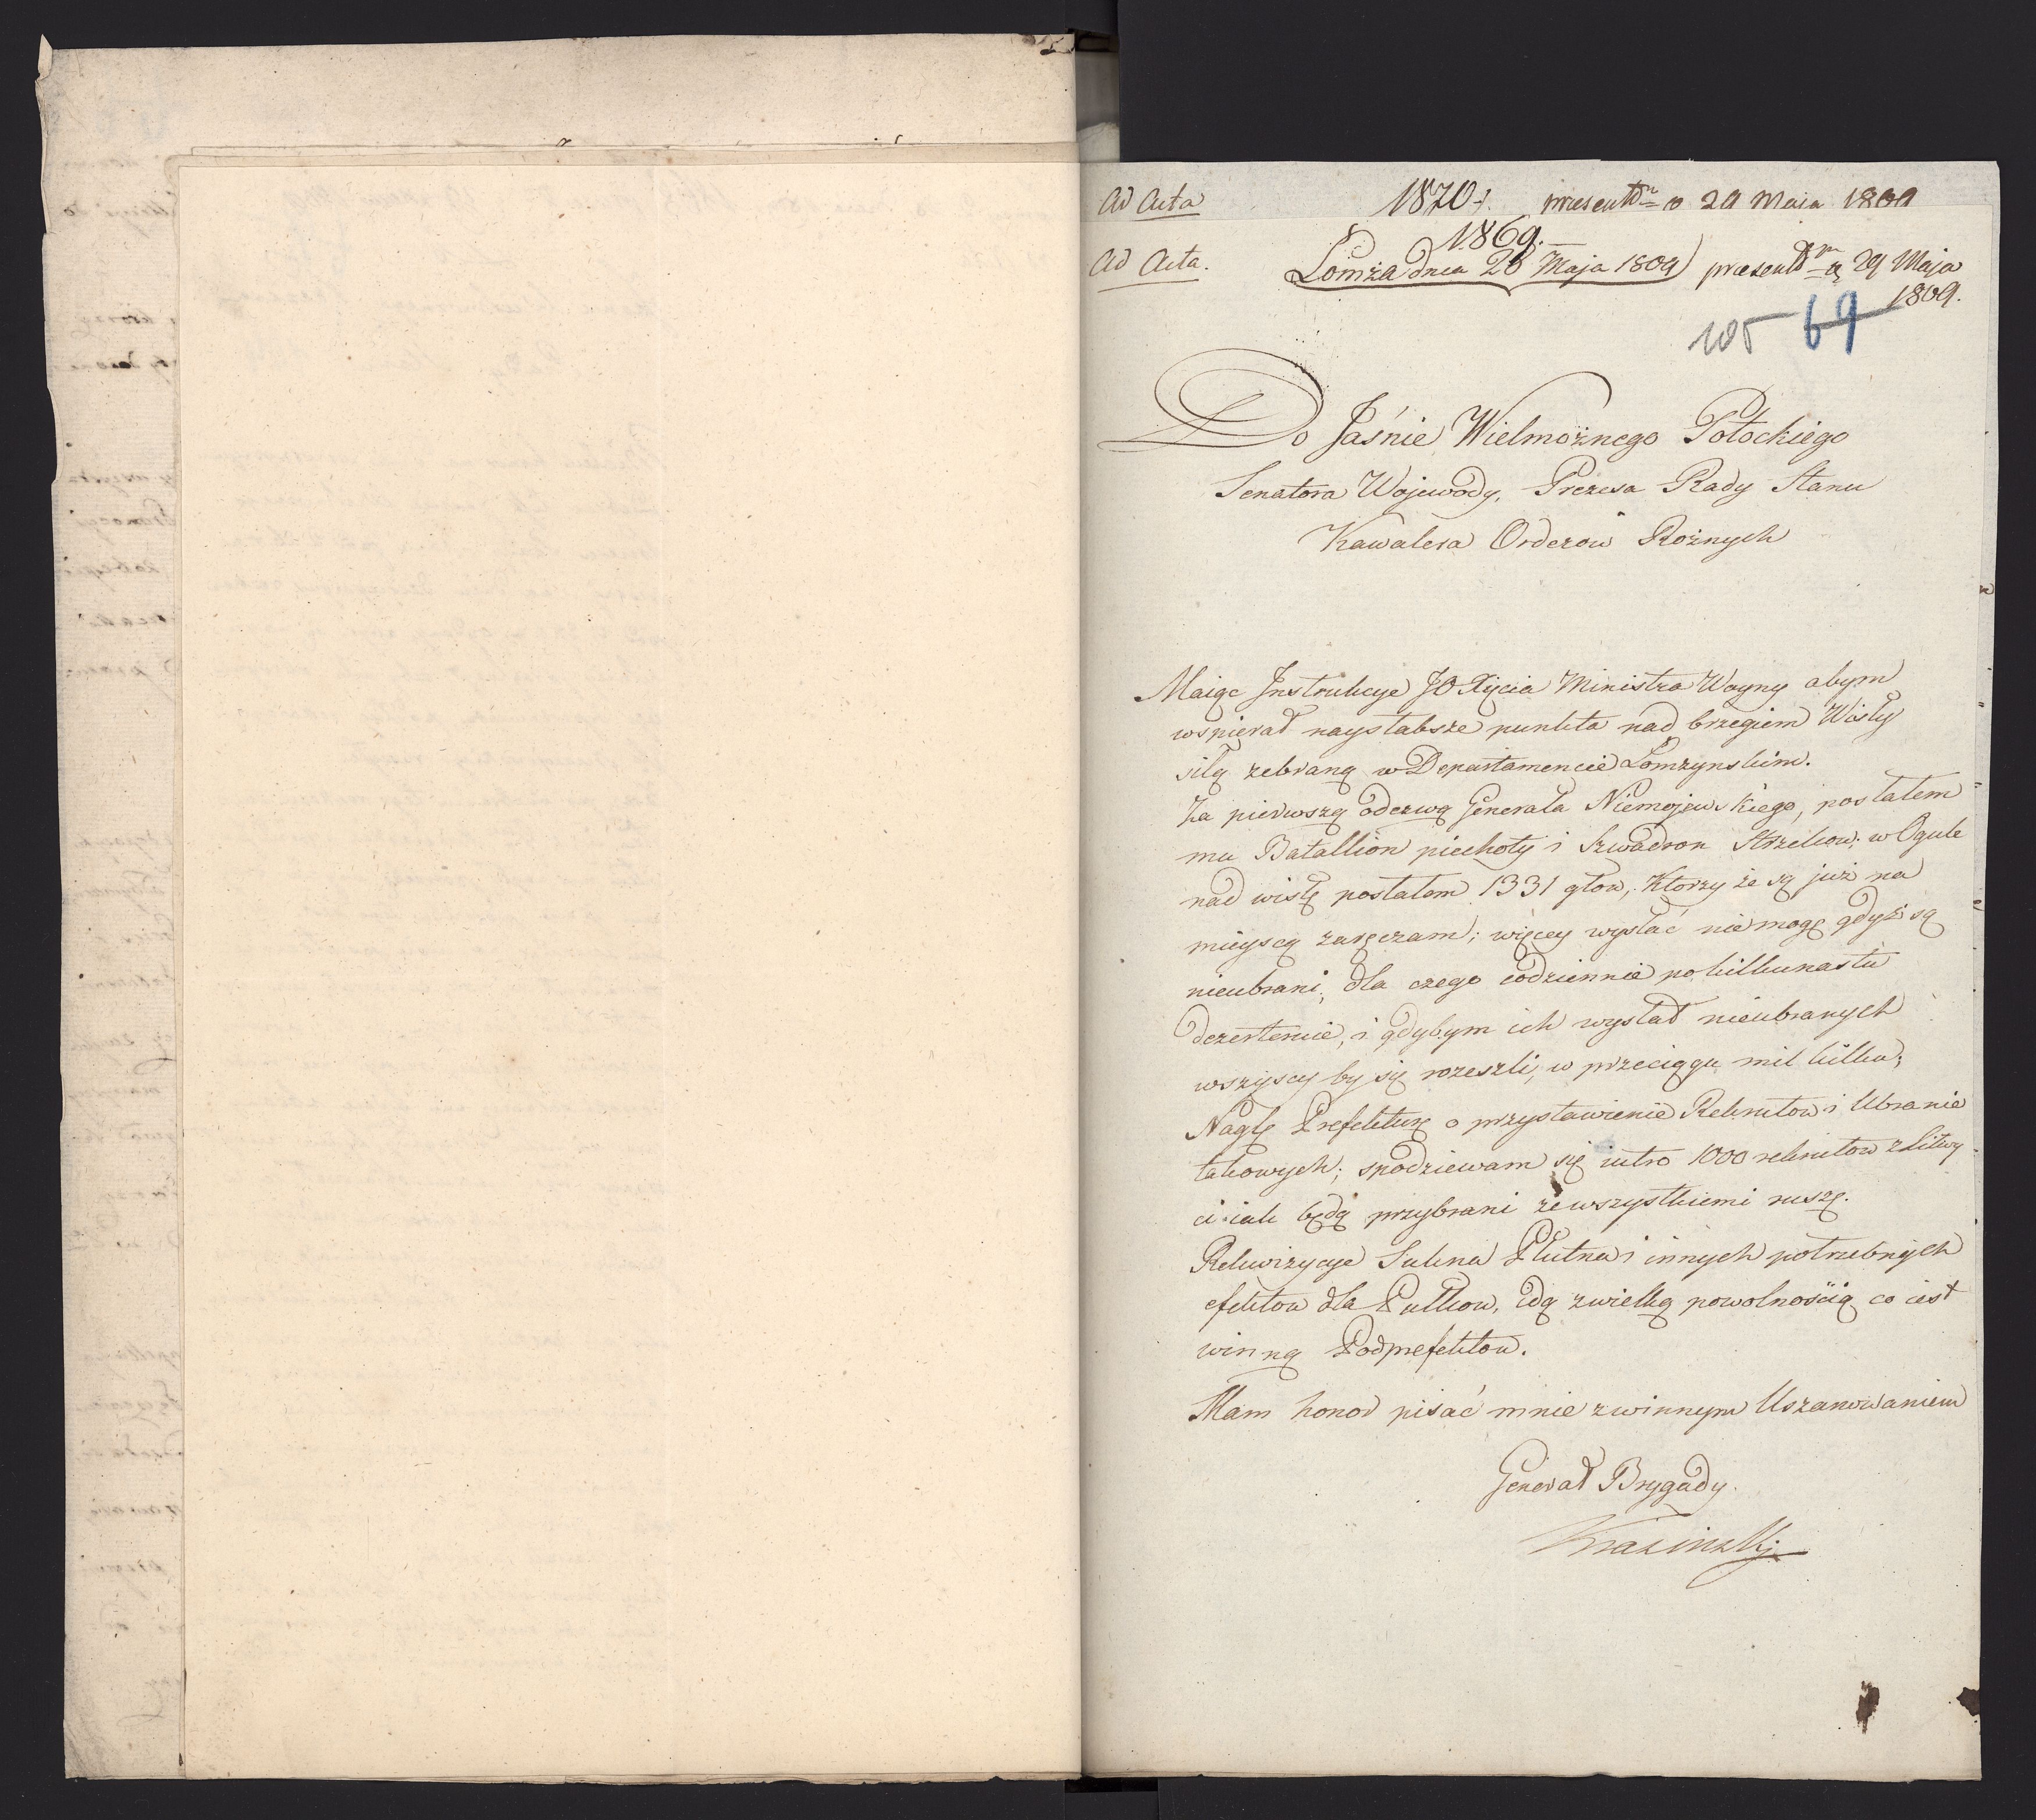 Ad Acta 1870. praesentn o 29 Maia 1809
1869.
Ad Acta. Łomża dnia 26 Maja 1809 praesentm a 29 Maja
1809.
105 69
Do Jaśnie Wielmożnego Potockiego
Senatora Wojewody, Prezesa Rady Stanu
Kawalera Orderow Rożnych
Maiąc Jnstrukcye JO Xięcia Ministra Woyny abym
wspierał naysłabsze punkta nad brzegiem Wisły
siłą zebraną w Departamencie Łomzynskim.
Za pierwszą odezwą Generała Niemojewskiego, posłałem
mu Batallion piechoty i Szwadron Strzelcow; w Ogule
nad wisłę posłałem 1331 głow, Ktorzy że są już na
mieyscą zaręczam; więcey wysłać nie mogę gdyż są
nieubrani, dla czego codziennie po kilkunastu
dezerteruie, i gdybym ich wysłał nieubranych
wszyscy by się rozeszli, w przeciągu mil kilku;
Naglę Prefekturę o przystawienie Rekrutow i Ubranie
takowych; spodziewam się iutro 1000 rekrutow z Litwy
ci iak będą przybrani ze wszystkiemi ruszę.
Rekwizycye Sukna Płutna i innych potrzebnych
efektow dla Pułkow, idą z wielką powolnością co iest
winną Podprefektow.
Mam honor pisać mnie z winnym Uszanowaniem
Generał Brygady.
Krasinski